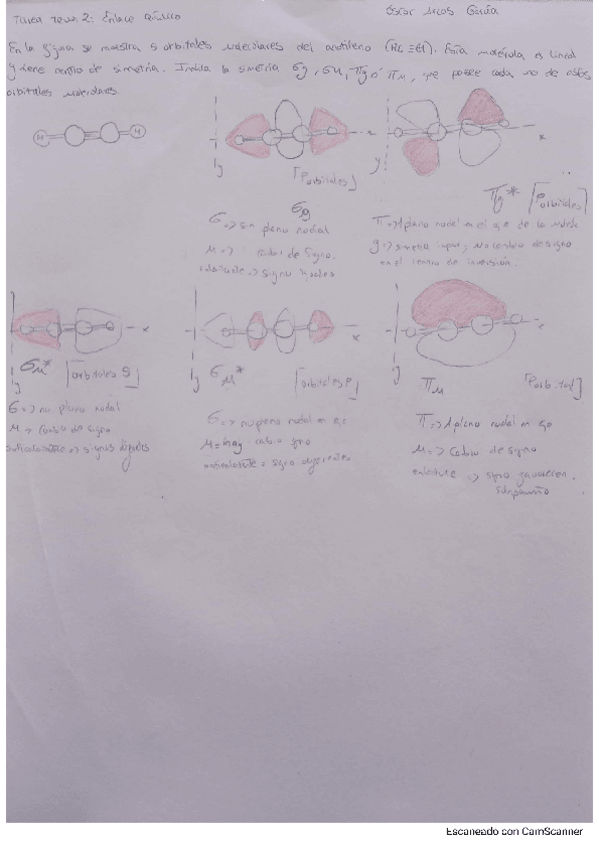 Tarea Tema 2: Enlace Químico
Óscar Arcos García
En la figura se muestra 5 orbitales moleculares del acetileno (HC≡CH). Esta molécula es lineal
y tiene centro de simetría. Indica la simetría σg, σu, πg o πu, que posee cada uno de estos
orbitales moleculares.
H
H
x
y
[Porbitales]
σg
σ => sin plano nodal
de signo.
=> signo iguales
x
y
πg* [Porbitales]
π => 1 plano nodal en el eje de la
g => simetría impar, No cambio de signo
en el centro de inversión.
x
y
σu* [orbitales S]
σ => no plano nodal
u => Cambio de signo
x
y
σu* [orbitales P]
σ => no plano nodal en eje
u = hay cambio signo
antienlazante = signo diferentes
x
y
πu [Porbital]
π => 1 plano nodal en eje
u => Cambio de signo
enlazante => signo
Escaneado con CamScanner